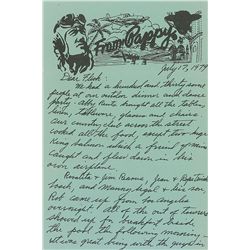 From Pappy
July 17, 1979
Dear Fleek:
We had a hundred and thirty some
people at an outdoor dinner and dance
party. Abby Rents brought all the tables,
linen, tableware, glasses and chairs.
Our country club across the street
cooked all the food, except two huge
King Salmon which a friend of mine
caught and flew down in his
own airplane.
Rosalita & Jim Barnes, Jean &
Losch, and Manny Legal & his son,
Rob came up from Los Angeles
overnight. All of the out of towners
showed up for breakfast around
the pool the following morning.
It was great being with the guys in